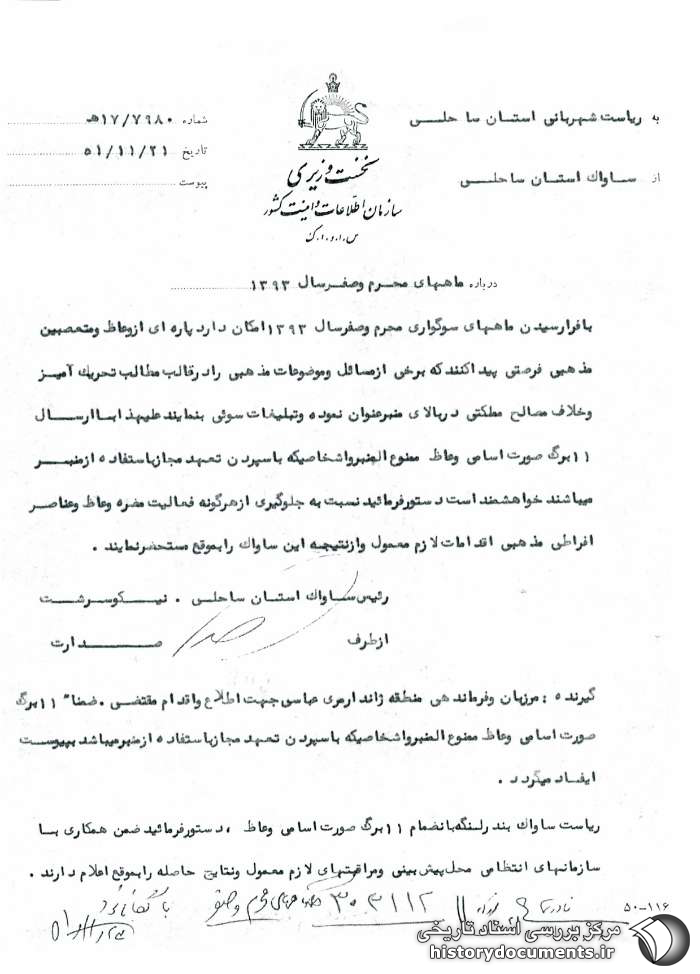 به ریاست شهربانی استان ساحلی
از ساواك استان ساحلی
نخست وزیری
سازمان اطلاعات و امنیت کشور
س.ا.و.ا.ک
شماره ۱۷/۷۹۸۰ﻫ
تاریخ ۵۱/۱۱/۲۱
پیوست
درباره ماههای محرم وصفرسال ۱۳۹۳
بافرارسیدن ماههای سوگواری محرم وصفرسال ۱۳۹۳امکان دارد پاره ای ازوعاظ ومتعصبین
مذهبی فرصتی پیداکنندکه برخی ازمسائل وموضوعات مذهبی رادرقالب مطالب تحریك آمیز
وخلاف مصالح مملکتی دربالای منبرعنوان نموده وتبلیغات سوئی بنمایند علیهذا باارسال
۱۱برگ صورت اسامی وعاظ ممنوع المنبرواشخاصیکه باسپردن تعهد مجازباستفاده ازمنبر
میباشند خواهشمند است دستورفرمائید نسبت به جلوگیری ازهرگونه فعالیت مضره وعاظ وعناصر
افراطی مذهبی اقدامات لازم معمول وازنتیجه این ساواك رابموقع مستحضرنمایند .
رئیس ساواك استان ساحلی . نیکوسرشت
ازطرف صدارت
گیرنده : مرزبان وفرماندهی منطقه ژاندارمری عباسی جهت اطلاع واقدام مقتضی .ضمنا" ۱۱برگ
صورت اسامی وعاظ ممنوع المنبرواشخاصیکه باسپردن تعهد مجازباستفاده ازمنبرمیباشد بپیوست
ایفاد میگردد .
ریاست ساواك بندرلنگه بانضمام ۱۱برگ صورت اسامی وعاظ ، دستورفرمائید ضمن همکاری با
سازمانهای انتظامی محل پیش بینی ومراقبتهای لازم معمول ونتایج حاصله رابموقع اعلام دارند .
۵۰-۱۱۶ ۳۰۳۱۱۲ محرم و صفر
مرکز بررسی اسناد تاریخی
historydocuments.ir